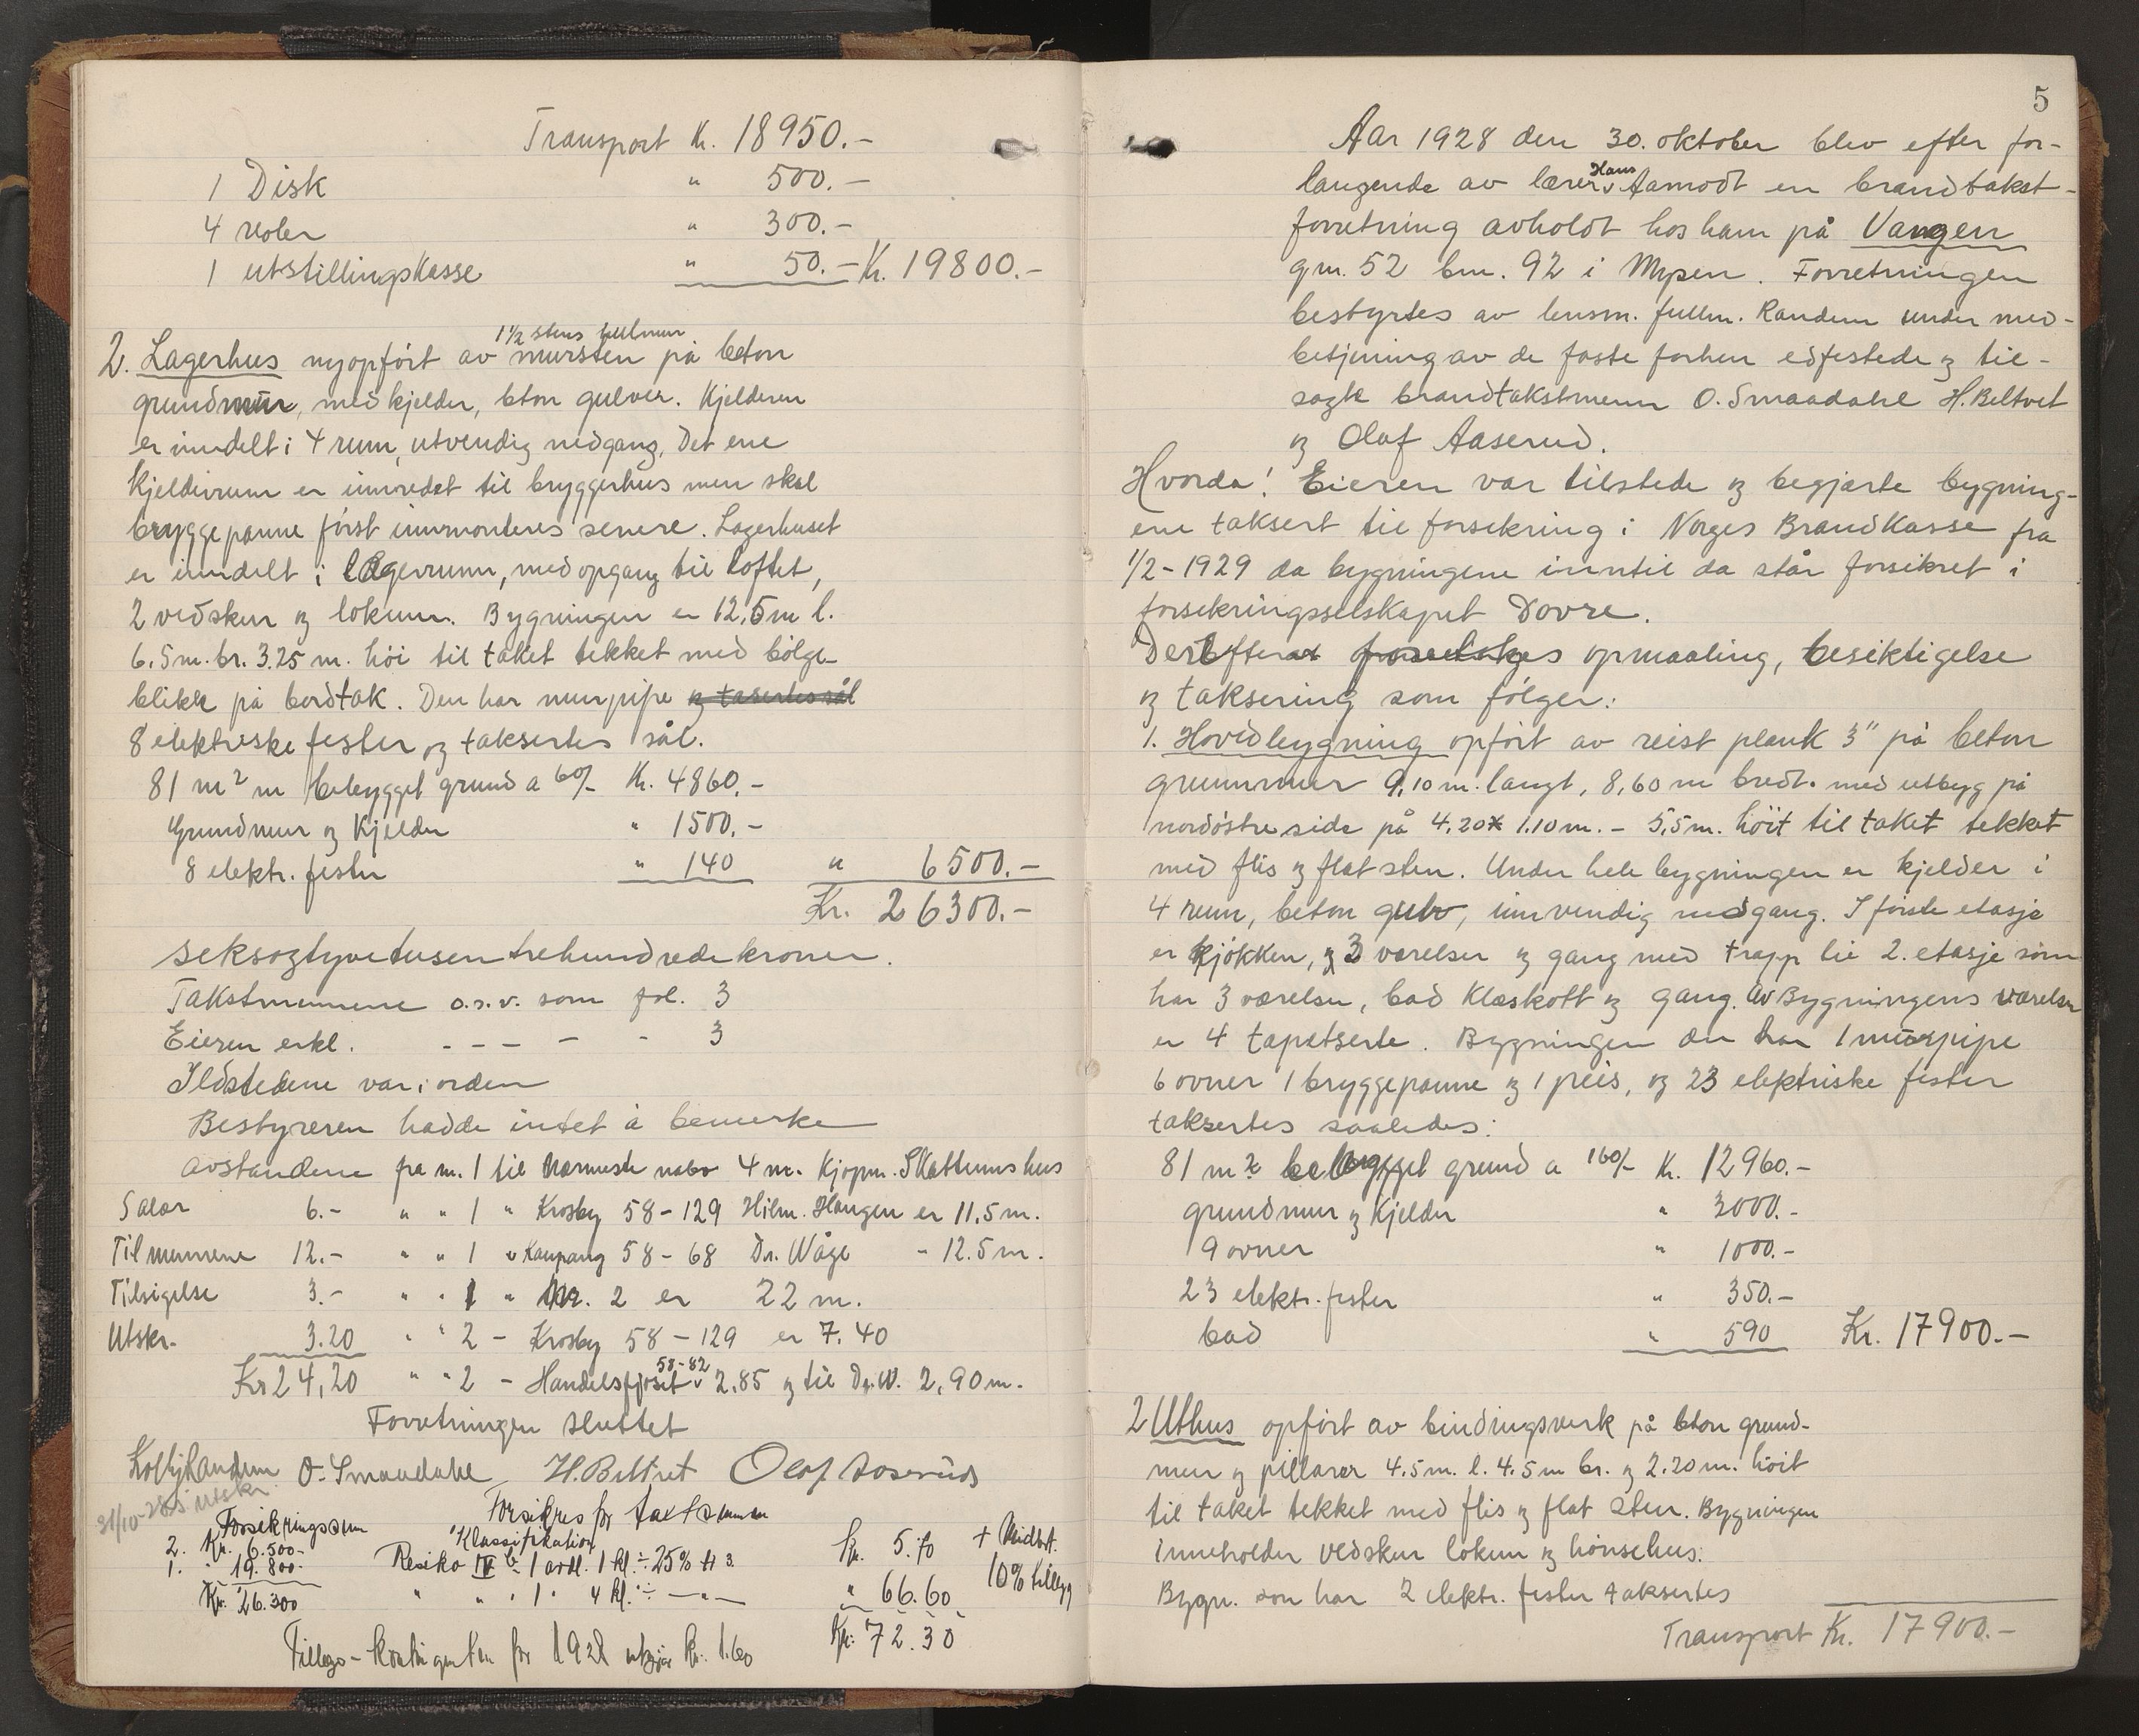 Transport Kr. 18950.-
1 Disk " 500.-
4 reoler " 300.-
1 utstillingskasse " 50.- Kr. 19800.-
1½ stens
2. Lagerhus nyopført av mursten på beton
grundmur, med kjelder, beton gulver. Kjelderen
er inndelt i 4 rum, utvendig nedgang, Det ene
kjelderrum er innredet til bryggerhus men skal
bryggepanne først innmonteres senere. Lagerhuset
er inndelt i lagerrum, med opgang til loftet,
2 vedskur og lokum. Bygningen er 12,5 m l.
6.5 m. br. 3.25 m. höi til taket tekket med bölge-
blikk på bordtak. Den har murpipe og taxertes sål
8 elektriske fester og taksertes sål.
81 m² m bebygget grund a 60/- Kr. 4860.-
Grundmur og Kjelder " 1500.-
8 elektr. fester " 140 " 6500.-
Kr. 26300.-
seksogtyvetusentrehundrede kroner.
Takstmennene o.s.v. som fol. 3
Eieren erkl. - - - - - 3
Ildstedene var i orden
Bestyreren hadde intet å bemerke
avstandene fra nr. 1 til nærmeste nabo 4 m. kjøpm. Skattums hus
Salær 6.- " " 1 " Krosby 58-129 Hilm. Haugen er 11.5 m.
Til mennene 12.- " " 1 " Kaupang 58-68 Dr. Wåge - 12.5 m.
Tilsigelse 3.- " " 1 " Nr. 2 er 22 m.
Utskr. 3.20 " " 2 - Krosby 58-129 er 7.40
58-82
Kr 24,20 " " 2 - Handelsfjøset 2.85 og til Dr. W. 2,90 m.
Forretningen sluttet
O. Smaadahl H. Beltvet Olaf Aaserud
31/10-28 Utskr.
Forsikringssum Forsikres for takstsummen
2. Kr. 6.500- Klassifikation
1. " 19.800- Resiko IV b 1 avdl. 1 kl. ÷ 25% Kr. 5.70 + Midlert.
Kr. 26.300 " " " 1 " 4 kl. ÷ -"- " 66.60 10% tillegg
Kr. 72.30
Tillegs-kontingenten for 1928 utgjør kr. 1.60
5
Aar 1928 den 30. oktober blev efter for-
langende av lærer Hans Aamodt en brandtakst-
forretning avholdt hos ham på Vangen
gnr. 52 bnr. 92 i Mysen. Forretningen
bestyrtes av lensm. fullm. Randem under med-
betjening av de faste forhen edfestede og til-
sagte brandtakstmenn O. Smaadahl H. Beltvet
og Olaf Aaserud.
Hvorda! Eieren var tilstede og begjærte bygning-
ene taksert til forsikring i Norges Brandkasse fra
1/2-1929 da bygningene inntil da står forsikret i
forsikringsselskapet Dovre.
Derefter opmaaling, besiktigelse
og taksering som fölger:
1. Hovedbygning opfört av reist plank 3" på beton
grunnmur 9,10 m. langt, 8,60 m bredt. med utbyg på
nordöstre side på 4.20 x 1.10 m. - 5,5 m. höit til taket tekket
med flis og flat sten. Under hele bygningen er kjelder i
4 rum, beton gulv, innvendig nedgang. I förste etasje
er kjökken, og 3 værelser og gang med trapp til 2. etasje som
har 3 værelser, bad Kleskott og gang. Av Bygningens værelser
er 4 tapetserte. Bygningen der har 1 murpipe
6 ovner 1 bryggepanne og 1 peis, og 23 elektriske fester
taksertes saaledes:
81 m² bebygget grund a 160/- Kr. 12960.-
grundmur og Kjelder " 3000.-
9 ovner " 1000.-
23 elektr. fester " 350.-
bad " 590 Kr. 17900.-
2 Uthus opfört av bindingsverk på beton grund-
mur og pillarer 4.5 m. l. 4.5 m br. og 2.20 m. höit
til taket tekket med flis og flat sten. Bygningen
inneholder vedskur lokum og hönsehus.
Bygn. som har 2 elektr. fester taksertes
Transport Kr. 17900.-